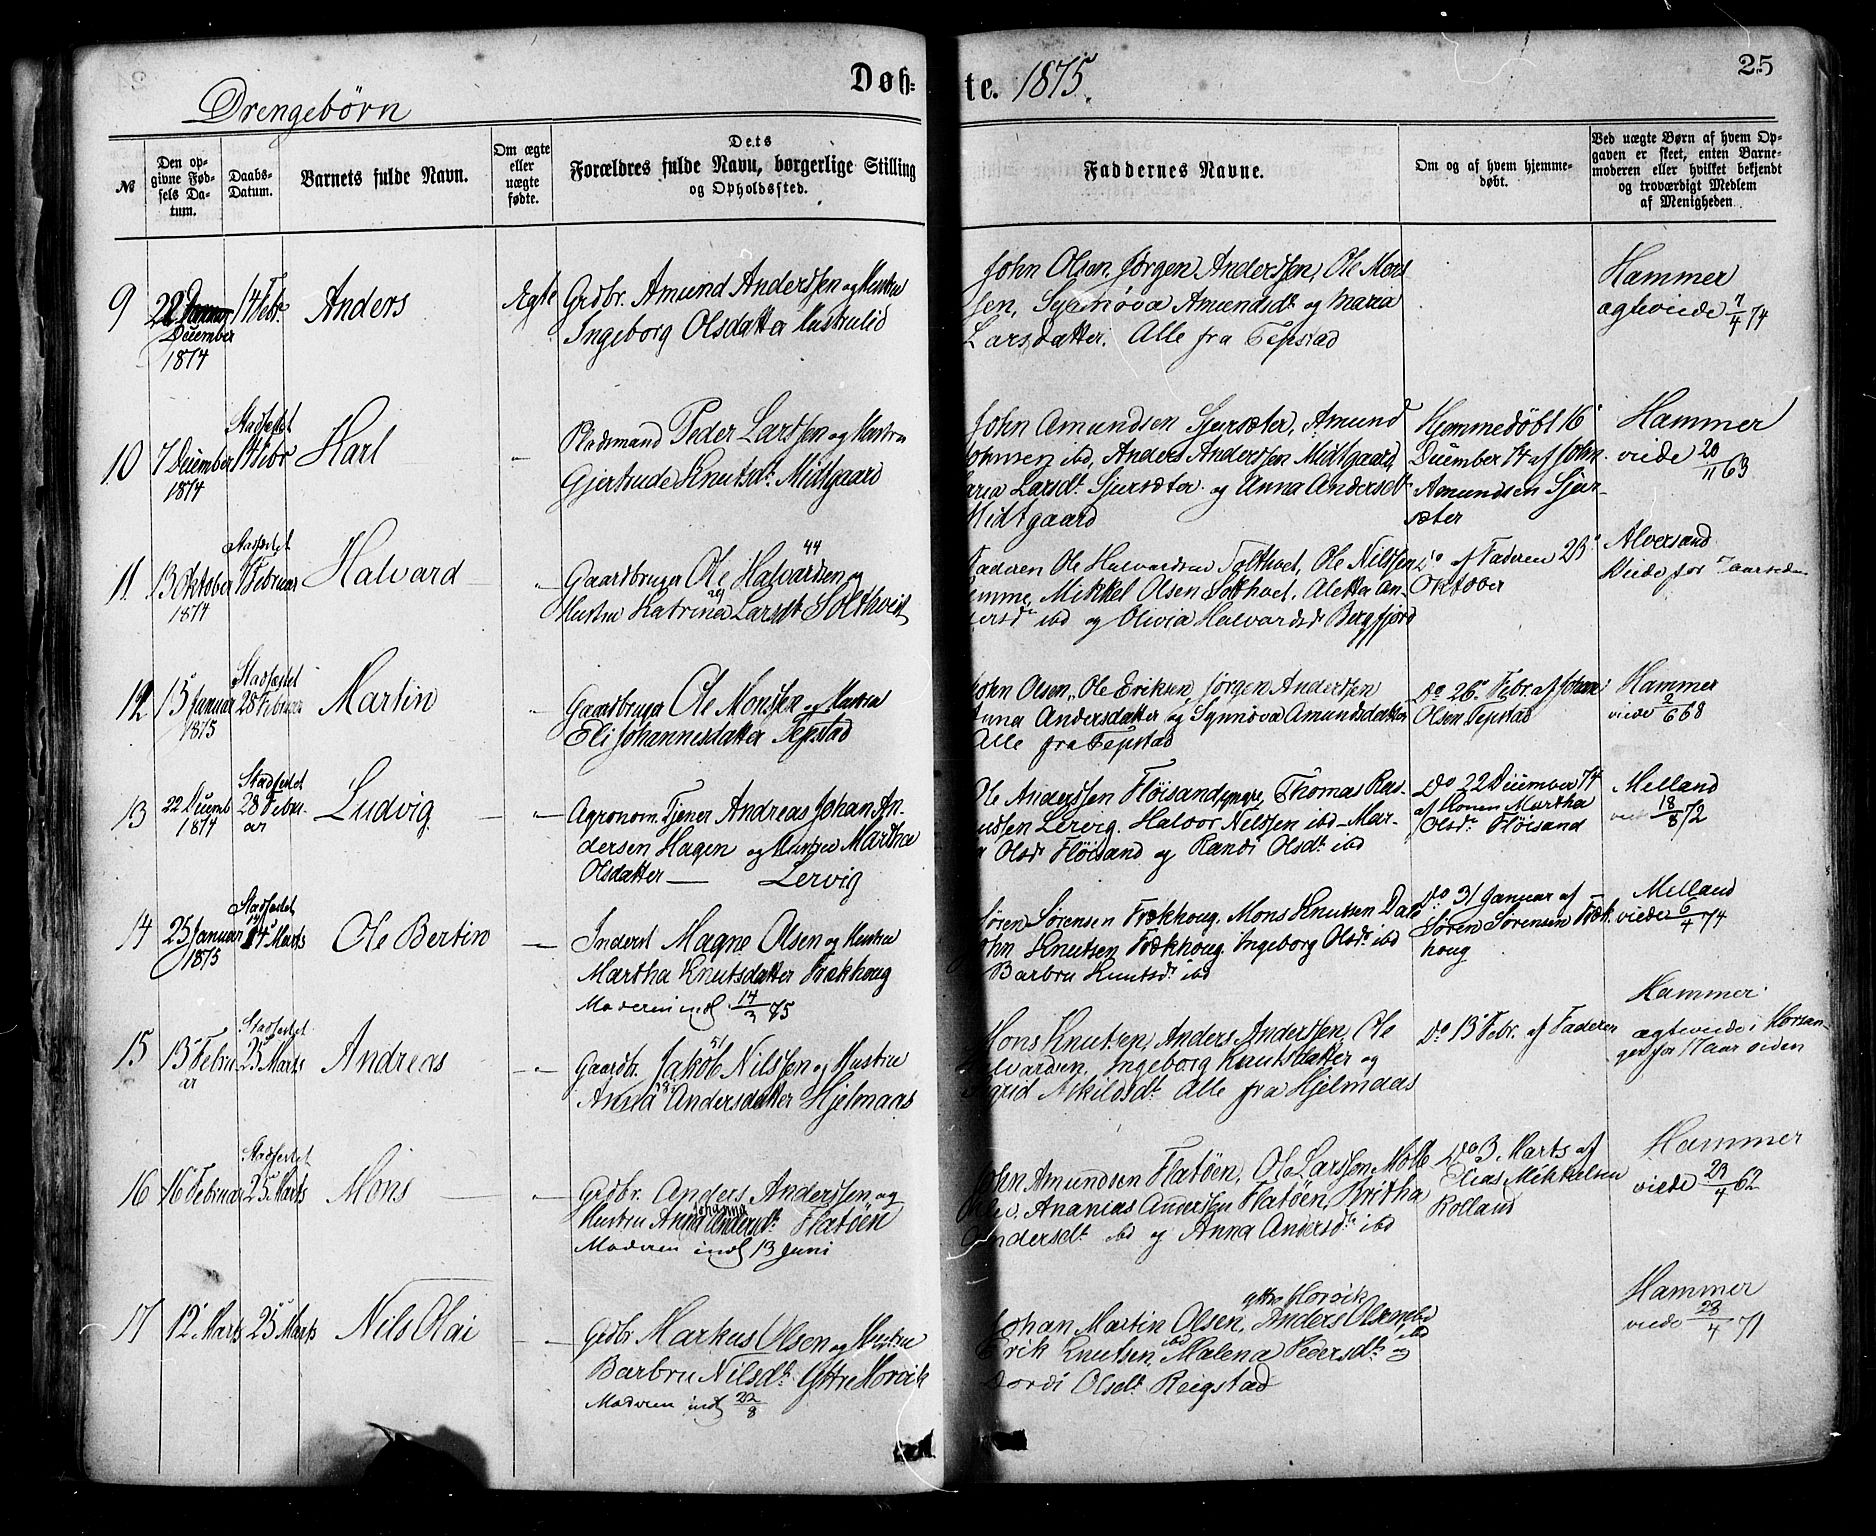 Døb- te. 1875. 25
Drengebørn
№
Den op-
givne Fød-
sels Da-
tum.
Daabs-
Datum.
Barnets fulde Navn.
Om ægte
eller
uægte
fødte.
Dets
Forældres fulde Navn, borgerlige Stilling
og Opholdssted.
Faddernes Navne.
Om og af hvem hjemme-
døbt.
Ved uægte Børn af hvem Op-
gaven er skeet, enten Barne-
moderen eller hvilket bekjendt
og troværdigt Medlem
af Menigheden
9
22
December
1874
14 Febr.
Anders
Egte
Grdbr. Amund Anderssen og Hustru
Ingeborg Olsdatter
John Olsen, Jørgen Anderssen, Ole Mons
sen, Synnøva Amundsdt og Maria
Larsdatter. Alle fra Tepstad
Hammer
agteviede 7/4 74
10
7 December
1874
Stadfestet
14 Febr
Harl
–
Pladsmand Peder Larssen og Hustru
Gjertrude Knutsdt. Midtgaard
John Amundsen Sjursæter, Amund
Johnsen ibd, Anders Anderssen Midtgaard,
Maria Larsdt. Sjursæter og Anna Andersdt
Midtgaard
Hjemmedøbt 16
December 74 af John
Amundsen Sjur-
sæter
Hammer
viede 20/11 63
11
13 Oktober
1874
Stadfestet
Februar
Halvard
–
Gaardbruger Ole Halvardsen 44 og
Hustru Katrina Larsdt Soltveit
Faderen Ole Halvardsen Soltveit, Ole Nilssen
Hemme, Mikkel Olsen Soltveit, Aletta An-
dersdt ibd og Olivia Halvardsdt Bergfjord
Do af Faderen 23
Oktober
Alversund
Viede for aar siden
12
15 Januar
1875
Stadfestet
28 Februar
Martin
–
Gaardbruger Ole Monssen og Hustru
Eli Johannesdatter Tepstad
John Olsen, Ole Eriksen, Jørgen Anderssen
Anna Andersdatter og Synnøva Amundsdatter
Alle fra Tepstad
Do 26 Febr. af John
Olsen Tepstad
Hammer
viede 2/6 68
13
22 Decemb
1874
Stadfestet
28 Febru-
ar
Ludvig
–
Agronom. Tjener Andreas Johan An-
dersen Hagen og Hustru Martha
Olsdatter — Lervig
Ole Anderssen Fløisand yngre, Thomas Ras-
mussen Lervig. Halvor Nilssen ibd – Mar-
Olsdt Fløisand og Randi Olsdt. ibd
Do 22 December 74
af Konen Martha
Olsdt. Fløisand
Melland
viede 18/8 72
14
25 Januar
1875
Stadfestet
14 Marts
Ole Bertin
–
Inderst Magne Olsen og Hustru
Martha Knutsdatter Frækhoug
Moderen indl 14/3 75
Søren Sørensen Frækhoug, Mons Knutsen
John Knutsen Frækhoug. Ingeborg Olsdt. ibd
Barbru Knutsdt. ibd
Do 31 Januar af
Søren Sørensen Fræk-
houg
Melland
viede 6/4 74
15
13 Febru
ar
Stadfestet
25 Marts
Andreas
–
Gaardbr. Jakob 51 Nilssen og Hustru
Anna Andersdatter Hjelmaas
Mons Knutsen, Anders Anderssen, Ole
Halvardsen, Ingeborg Knutsdatter og
Sigrid Mikildsdt. Alle fra Hjelmaas
Do 13 Febr. af Faderen
Hammer
agteviede i Hosan-
ger for 17 aar siden
16
16 Februar
Stadfestet
25 Marts
Mons
–
Grdbr. Anders Anderssen og
Hustru Anna Johanna Andersdt. Flatøen
Moderen indl 13 Juni
John Amundsen Flatøen, Ole Larssen Molle
Ananias Andersen Flatøen, Britha
Andersdt ibd og Anna Andersdt ibd
Do 3. Marts af
Elias Mikkelsen
Rolland
Hammer
viede 23/4 62
17
12 Marts
25 Marts
Nils Olai
–
Grdbr Markus Olsen og Hustru
Barbru Nilsdt. Yttre Horvik
Moderen indl 22/8
Johan Martin Olsen, yttre Horvik, Anders Olsen ibd
Erik Knutsen, ibd Malena Pedersdt. ibd og
Dordi Olsdt. Reigstad
Hammer
viede 23/4 71